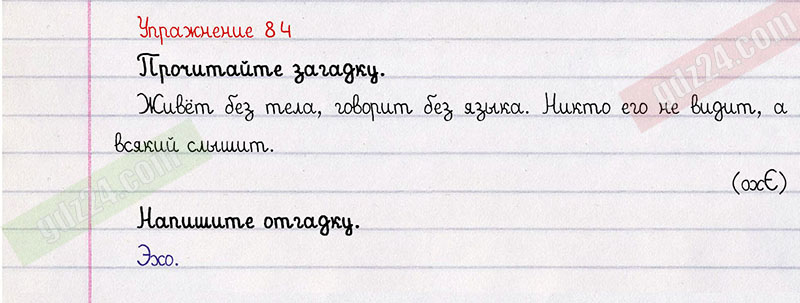 Упражнение 84
gdz24.com
Прочитайте загадку.
Живёт без тела, говорит без языка. Никто его не видит, а
всякий слышит.
(охЄ)
gdz24.com
Напишите отгадку.
Эхо.